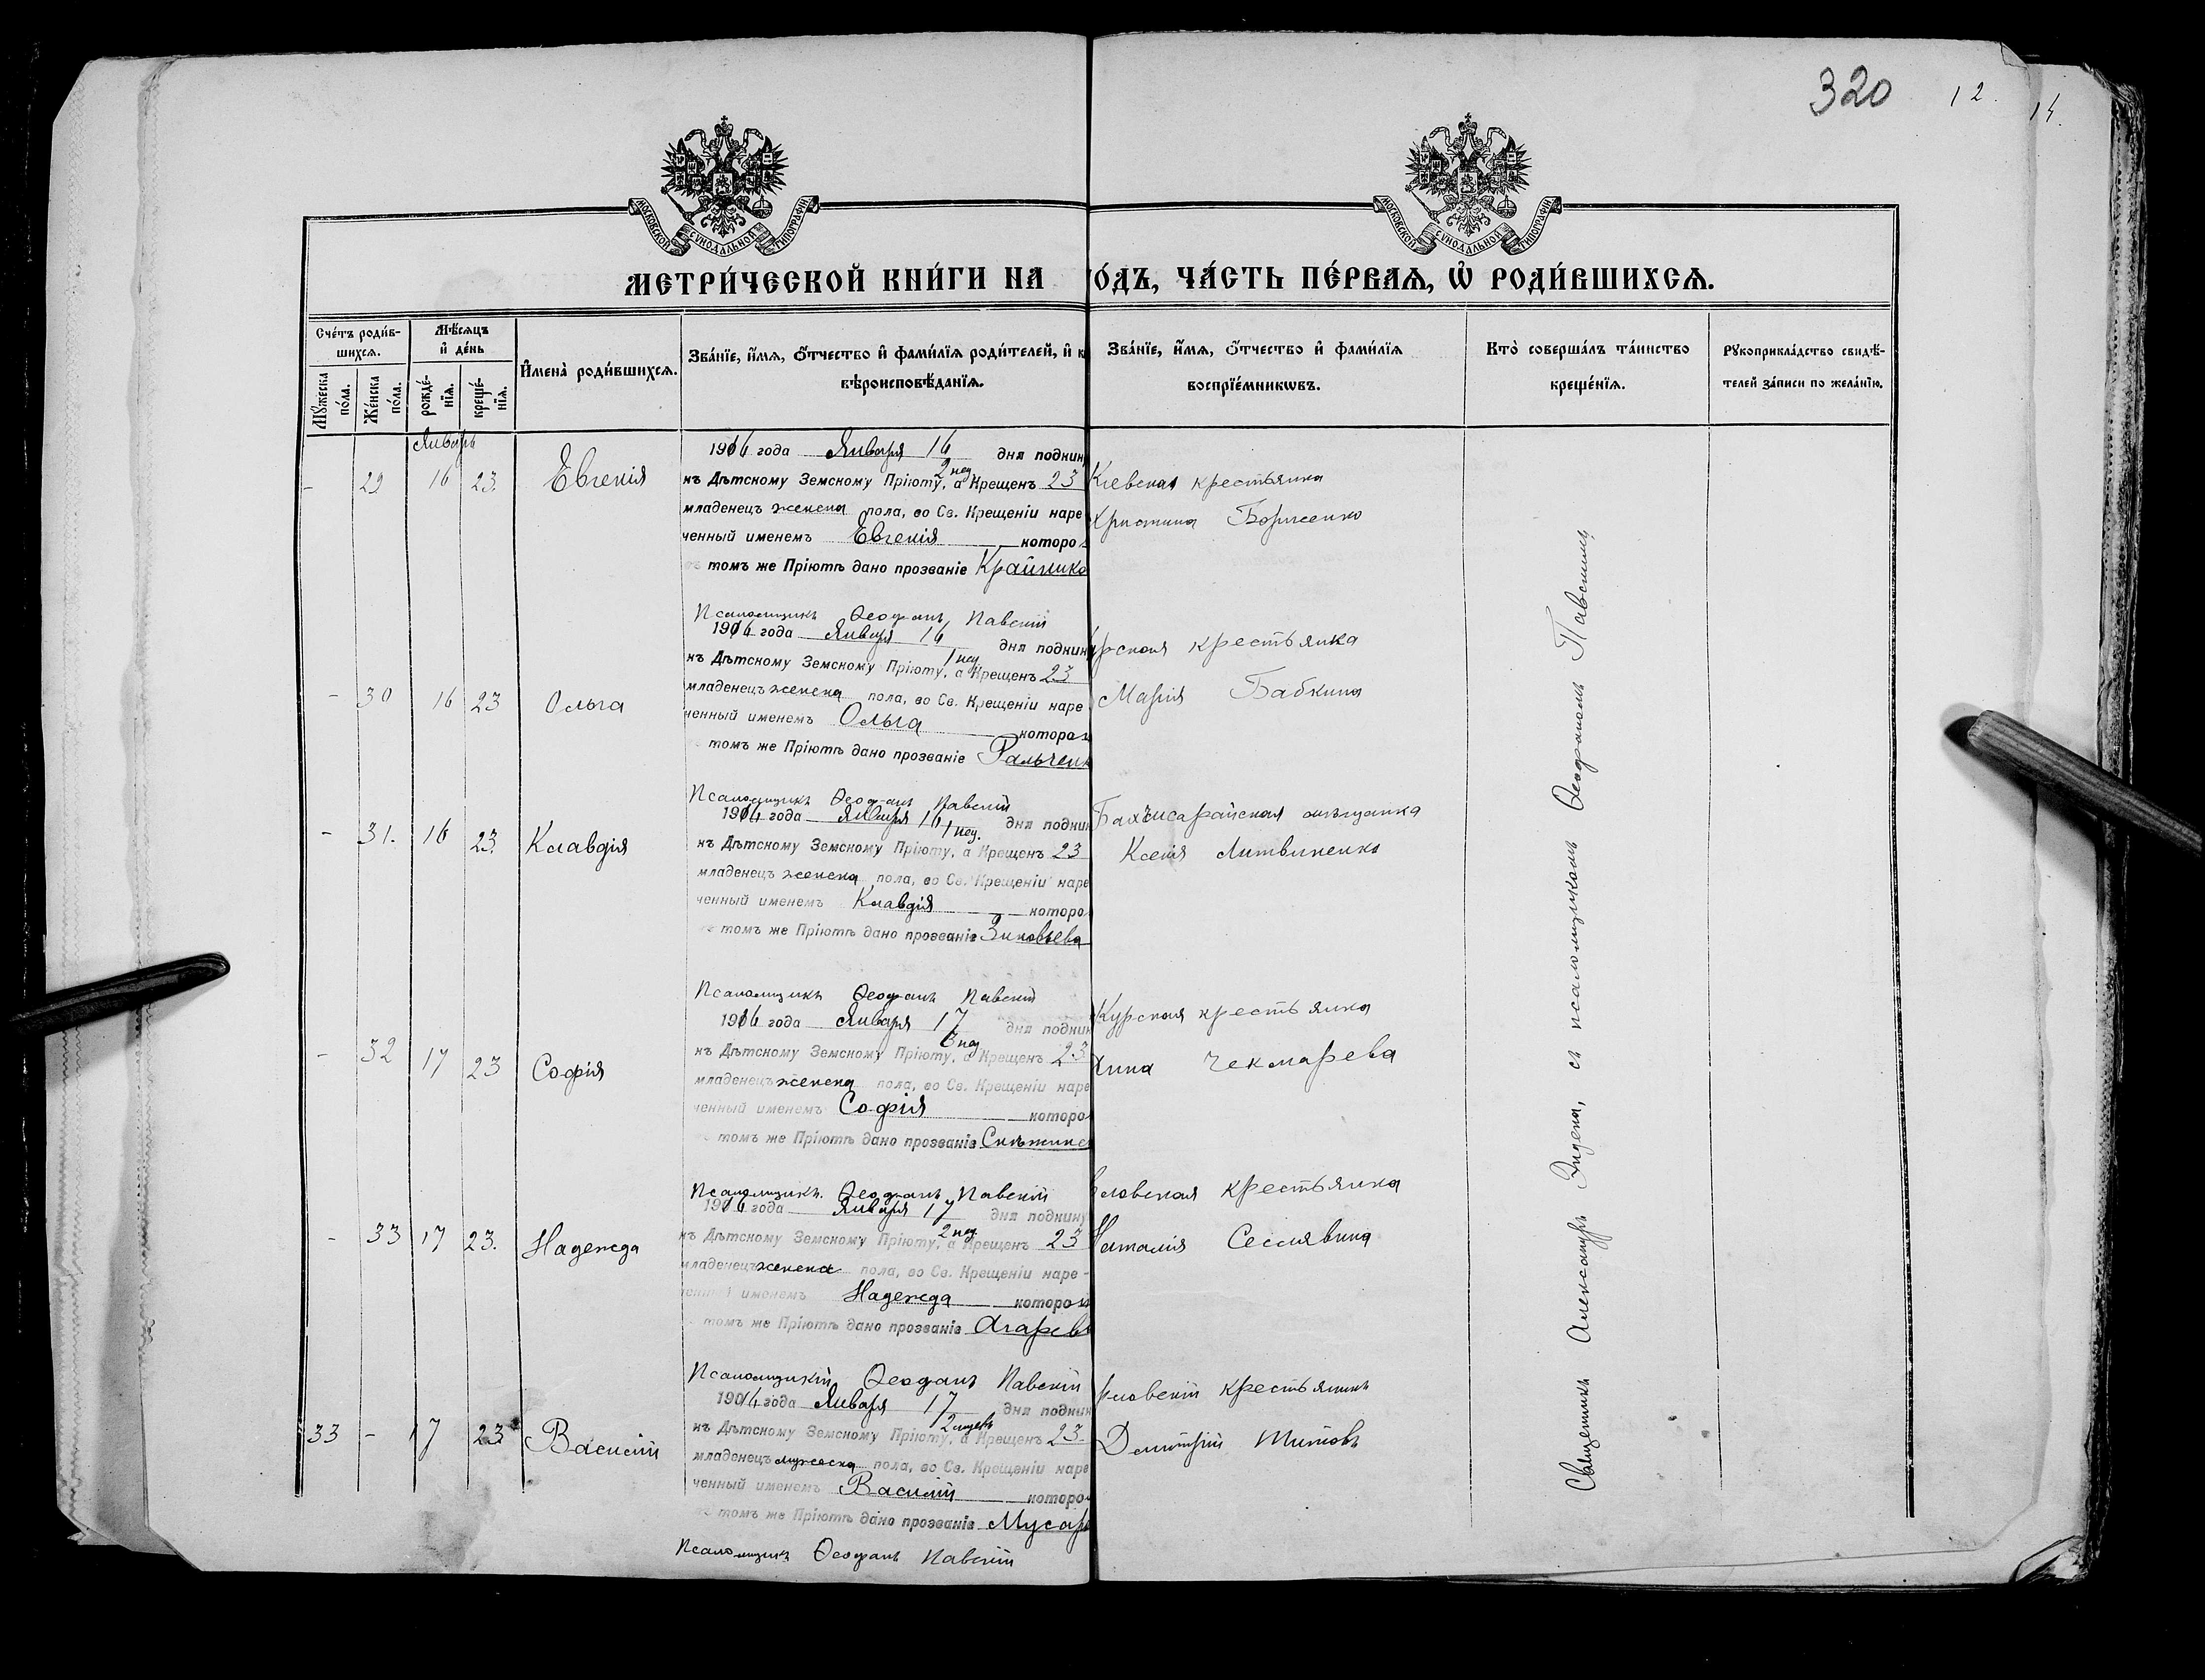 320 12. 14.
МОСКОВСКОЙ СѴНОДАЛЬНОЙ ТИПОГРАФІИ
МОСКОВСКОЙ СѴНОДАЛЬНОЙ ТИПОГРАФІИ
МЕТРИ́ЧЕСКОЙ КНИ́ГИ НА
О́ДЪ, ЧА́СТЬ ПЕ́РВАѦ, Ѡ РОДИ́ВШИХСѦ.
Сче́тъ роди́в-
шихсѧ.
Мꙋ́жеска по́ла.
Же́нска по́ла.
Мѣ́сѧцъ
и҆ де́нь
рожде́-
нїѧ.
креще́-
нїѧ.
И҆мена̀ роди́вшихсѧ.
Зва́нїе, и҆́мѧ, ѻ҆́тчество и҆ фами́лїѧ роди́телей, и҆ к
вѣроисповѣ́данїѧ.
Зва́нїе, и҆́мѧ, ѻ҆́тчество и҆ фами́лїѧ
воспрїе́мникѡвъ.
Кто̀ соверша́лъ та́инство
креще́нїѧ.
Рꙋкоприкла́дство свидѣ́-
телей за́писи по жела́нїю.
Январь
- 29 16 23. Евгенія
1916 года Января 16 дня подкин
2 нед
къ Дѣтскому Земскому Пріюту, а Крещенъ 23
младенецъ женска пола, во Св. Крещеніи наре
ченный именемъ Евгенія которо
томъ же Пріютѣ дано прозваніе
Псаломщикъ Ѳеофанъ Павскій
Кіевская крестьянка
Христина Борисенко
- 30 16 23 Ольга
1916 года Января 16 дня подкин
1 нед
къ Дѣтскому Земскому Пріюту, а Крещенъ 23
младенецъ женска пола, во Св. Крещеніи наре
ченный именемъ Ольга которо
томъ же Пріютѣ дано прозваніе Ральченк
Псаломщикъ Ѳеофанъ Павскій
рская крестьянка
Марія Бабкина
- 31. 16 23. Клавдія
1916 года Января 16 дня подкин
1 нед.
къ Дѣтскому Земскому Пріюту, а Крещенъ 23
младенецъ женска пола, во Св. Крещеніи наре
ченный именемъ Клавдія которо
томъ же Пріютѣ дано прозваніе Зиновьева
Псаломщикъ Ѳеофанъ Павскій
Бахчисарайская мѣщанка
Ксенія Литвиненко
- 32 17 23 Софія
1916 года Января 17 дня подкин
3 нед
къ Дѣтскому Земскому Пріюту, а Крещенъ 23
младенецъ женска пола, во Св. Крещеніи наре
ченный именемъ Софія которо
томъ же Пріютѣ дано прозваніе
Псаломщикъ Ѳеофанъ Павскій
Курская крестьянка
Чекмарева
- 33 17 23. Надежда
1916 года Января 17 дня подкину
2 нед
къ Дѣтскому Земскому Пріюту, а Крещенъ 23
младенецъ женска пола, во Св. Крещеніи наре-
именемъ Надежда которо
томъ же Пріютѣ дано прозваніе Агарев
Псаломщикъ Ѳеофанъ Павскій
ловская крестьянка
Наталія Селявина
33 - 17 23 Василій
1916 года Января 17 дня подкин
къ Дѣтскому Земскому Пріюту, а Крещенъ 23
младенецъ мужеска пола, во Св. Крещеніи наре
ченный именемъ Василій которо
томъ же Пріютѣ дано прозваніе Мусар
Псаломщикъ Ѳеофанъ Павскій
рловскій крестьянинъ
Димитрій Титовъ
Священникъ Александръ съ псаломщикомъ Ѳеофаномъ Павскимъ